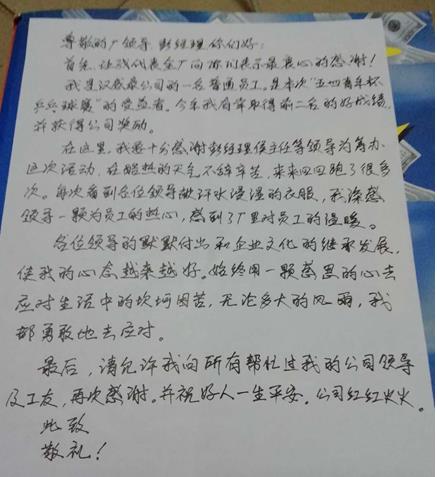 尊敬的厂领导、彭经理你们好：
首先，让我代表全厂向你们表示最衷心的感谢！
我是汉威泰公司的一名普通员工。是本次“五四青年杯
乒乓球赛”的受益者。今年我有幸取得前二名的好成绩，
并获得公司奖励。
在这里，我要十分感谢彭经理侯主任等领导为筹办
这次活动，在酷热的天气不辞辛苦，来来回回跑了很多
次。每次看到各位领导被汗水浸湿的衣服，我深感
领导一颗为员工的热心，感到了厂里对员工的温暖。
各位领导的默默付出和企业文化的继承发展，
使我的心态越来越好。始终用一颗感恩的心去
应对生活中的坎坷困苦，无论多大的风雨，我
都勇敢地去应对。
最后，请允许我向所有帮忙过我的公司领导
及工友，再次感谢。并祝好人一生平安。公司红红火火。
此致
敬礼！